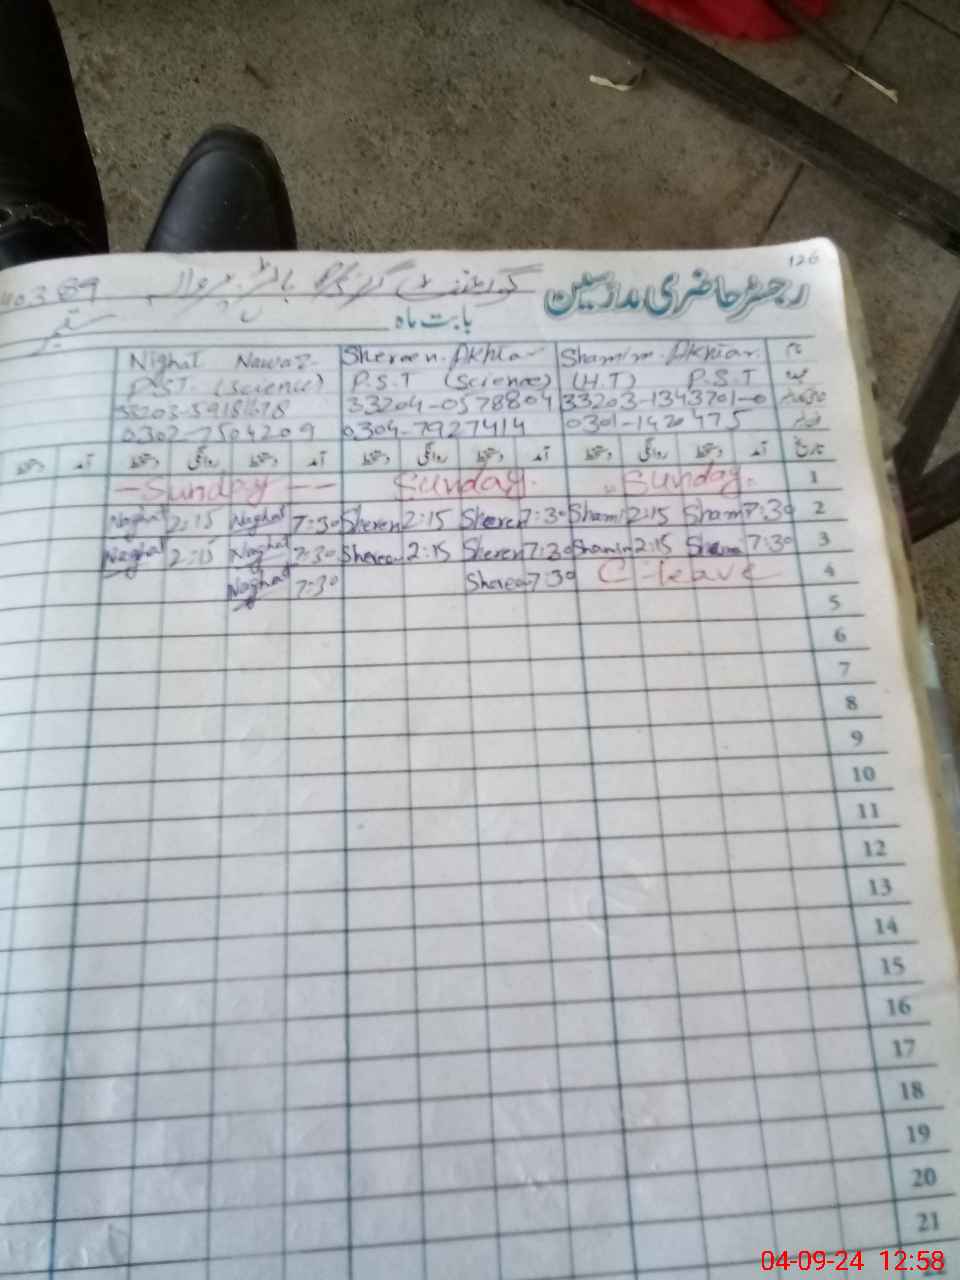 126
رجسٹر حاضری مدرسین
گورنمنٹ گرلز
بابت ماہ ستمبر
نام Shamim Akhtar Shereen Akhtar Nighat Nawaz
P.S.T (H.T) P.S.T (Science) P.S.T (Science)
33203-1343701-0 33204-0578804
0301-1420475 0304-7927414 0302-7504209
تاریخ آمد دستخط روانگی دستخط آمد دستخط روانگی دستخط آمد دستخط روانگی دستخط آمد دستخط
1 Sunday Sunday Sunday
2 7:30 Sham 2:15 Sham 7:30 Sheren 2:15 Sheren 7:30 Naghat 2:15 Naghat
3 7:30 2:15 Shamim 7:30 Sheren 2:15 Sheren 7:30 Naghat 2:15 Naghat
4 C-leave 7:30 Sheren 7:30 Naghat
5
6
7
8
9
10
11
12
13
14
15
16
17
18
19
20
21
04-09-24 12:58